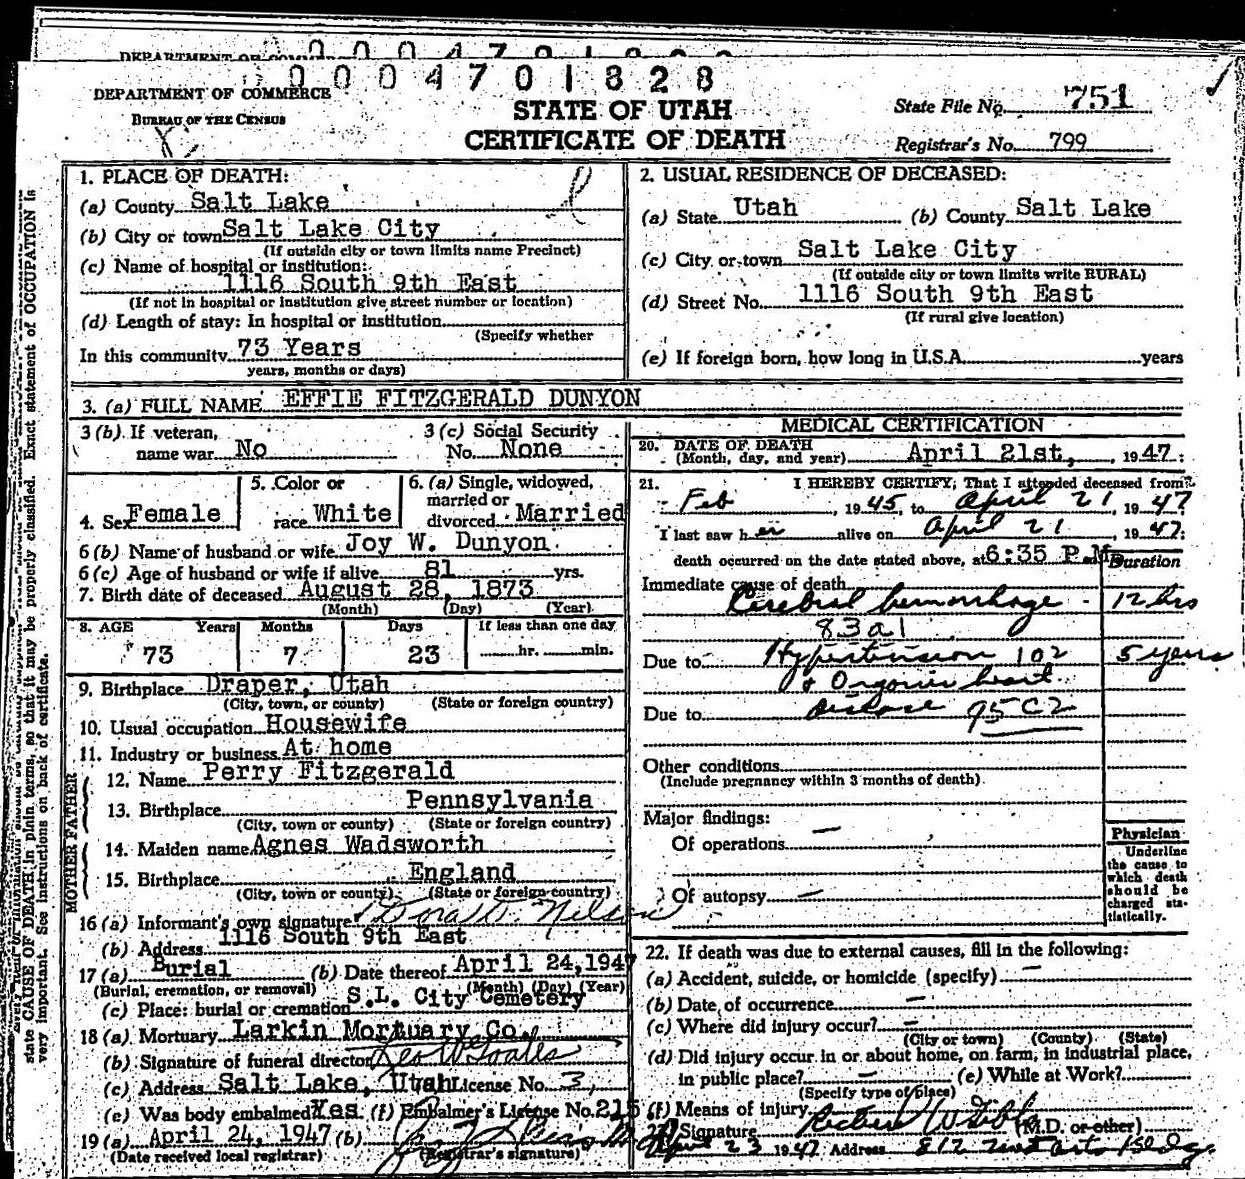 DEPARTMENT OF COMMERCE
0004701828
DEPARTMENT OF COMMERCE
BUREAU OF THE CENSUS
STATE OF UTAH
CERTIFICATE OF DEATH
State File No. 751
Registrar's No. 799
1. PLACE OF DEATH:
(a) County Salt Lake
(b) City or town Salt Lake City
(If outside city or town limits name Precinct)
(c) Name of hospital or institution:
1116 South 9th East
(If not in hospital or institution give street number or location)
(d) Length of stay: In hospital or institution
(Specify whether
In this community 73 Years
years, months or days)
2. USUAL RESIDENCE OF DECEASED:
(a) State Utah (b) County Salt Lake
(c) City or town Salt Lake City
(If outside city or town limits write RURAL)
(d) Street No. 1116 South 9th East
(If rural give location)
(e) If foreign born, how long in U.S.A. years
3. (a) FULL NAME EFFIE FITZGERALD DUNYON
3 (b). If veteran, 3 (c) Social Security
name war No No. None
4. Sex Female 5. Color or race White 6. (a) Single, widowed, married or divorced Married
6 (b) Name of husband or wife Joy W. Dunyon
6 (c) Age of husband or wife if alive 81 yrs.
7. Birth date of deceased August 28, 1873
(Month) (Day) (Year)
8. AGE Years Months Days If less than one day
73 7 23 hr. min.
9. Birthplace Draper, Utah
(City, town, or county) (State or foreign country)
10. Usual occupation Housewife
11. Industry or business At home
FATHER
12. Name Perry Fitzgerald
13. Birthplace Pennsylvania
(City, town or county) (State or foreign country)
MOTHER
14. Maiden name Agnes Wadsworth
15. Birthplace England
(City, town or county) (State or foreign country)
16 (a) Informant's own signature Nelson
(b) Address 1116 South 9th East
17 (a) Burial (b) Date thereof April 24, 1947
(Burial, cremation, or removal) (Month) (Day) (Year)
(c) Place: burial or cremation S.L. City Cemetery
18 (a) Mortuary Larkin Mortuary Co.
(b) Signature of funeral director
(c) Address Salt Lake, Utah License No. 3
(e) Was body embalmed? Yes (f) Embalmer's License No. 215
19 (a) April 24, 1947 (b)
(Date received local registrar) (Registrar's signature)
MEDICAL CERTIFICATION
20. DATE OF DEATH
(Month, day, and year) April 21st, 1947
21. I HEREBY CERTIFY, That I attended deceased from
Feb, 1945, to April 21, 1947
I last saw her alive on April 21 1947;
death occurred on the date stated above, at 6:35 P.M. Duration
Immediate cause of death
Cerebral hemorrhage 12 hrs
83a1
Due to Hypertension 102 5 years
& Organic heart
Due to disease 95C2
Other conditions
(Include pregnancy within 3 months of death)
Major findings:
Of operations —
Of autopsy —
Physician
Underline
the cause to
which death
should be
charged sta-
tistically.
22. If death was due to external causes, fill in the following:
(a) Accident, suicide, or homicide (specify) —
(b) Date of occurrence —
(c) Where did injury occur? —
(City or town) (County) (State)
(d) Did injury occur in or about home, on farm, in industrial place,
in public place? — (e) While at Work?
(Specify type of place)
(f) Means of injury
Signature (M.D. or other)
April 23 1947 Address 812 Bldg.
state CAUSE OF DEATH in plain terms, so that it may be properly classified. Exact statement of OCCUPATION is
very important. See instructions on back of certificate.